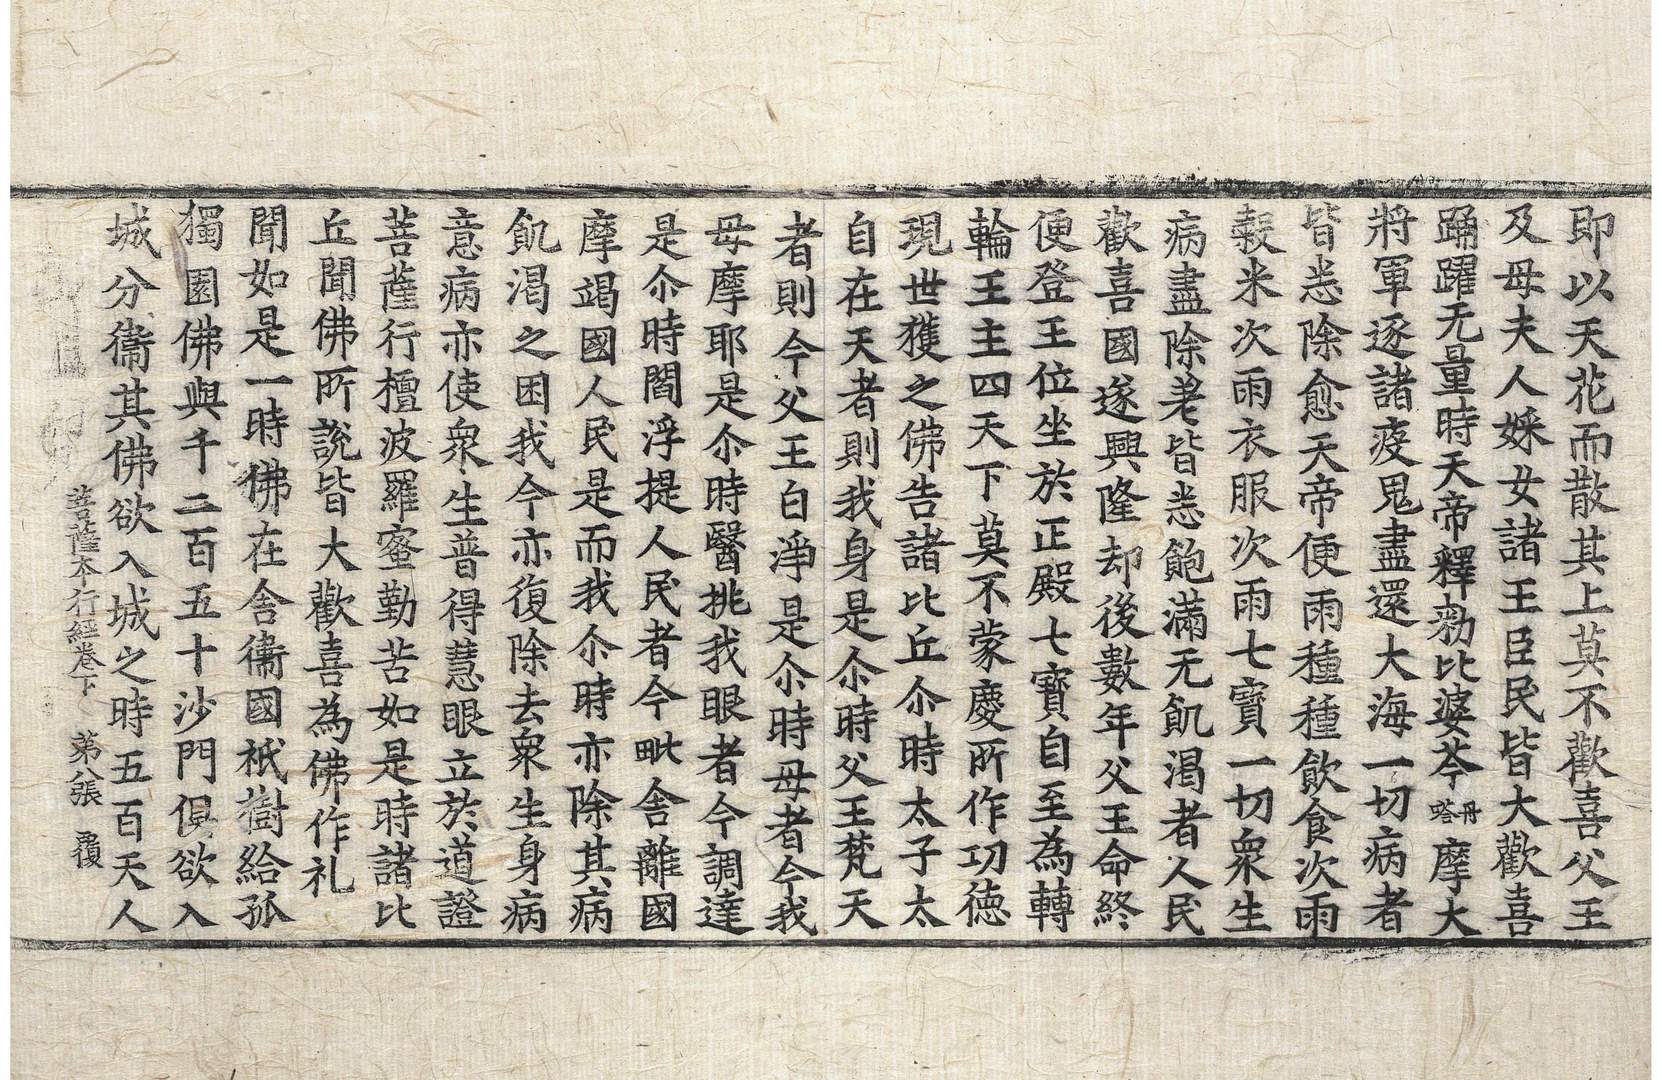 即以天花而散其上莫不歡喜父王
及母夫人婇女諸王臣民皆大歡喜
踊躍无量時天帝釋勑比婆芩塔冊摩大
將軍逐諸疫鬼盡還大海一切病者
皆悉除愈天帝便雨種種飲食次雨
穀米次雨衣服次雨七寶一切衆生
病盡除差皆悉飽滿无飢渴者人民
歡喜國遂興隆却後數年父王命終
便登王位坐於正殿七寶自至為轉
輪王主四天下莫不蒙慶所作功德
現世獲之佛告諸比丘尒時太子太
自在天者則我身是尒時父王梵天
者則今父王白淨是尒時母者今我
母摩耶是尒時醫挑我眼者今調達
是尒時閻浮提人民者今毗舍離國
摩竭國人民是而我尒時亦除其病
飢渴之困我今亦復除去衆生身病
意病亦使衆生普得慧眼立於道證
菩薩行檀波羅蜜勤苦如是時諸比
丘聞佛所說皆大歡喜為佛作礼
聞如是一時佛在舍衞國祇樹給孤
獨園佛與千二百五十沙門俱欲入
城分衞其佛欲入城之時五百天人
菩薩本行經卷下 第八張 覆